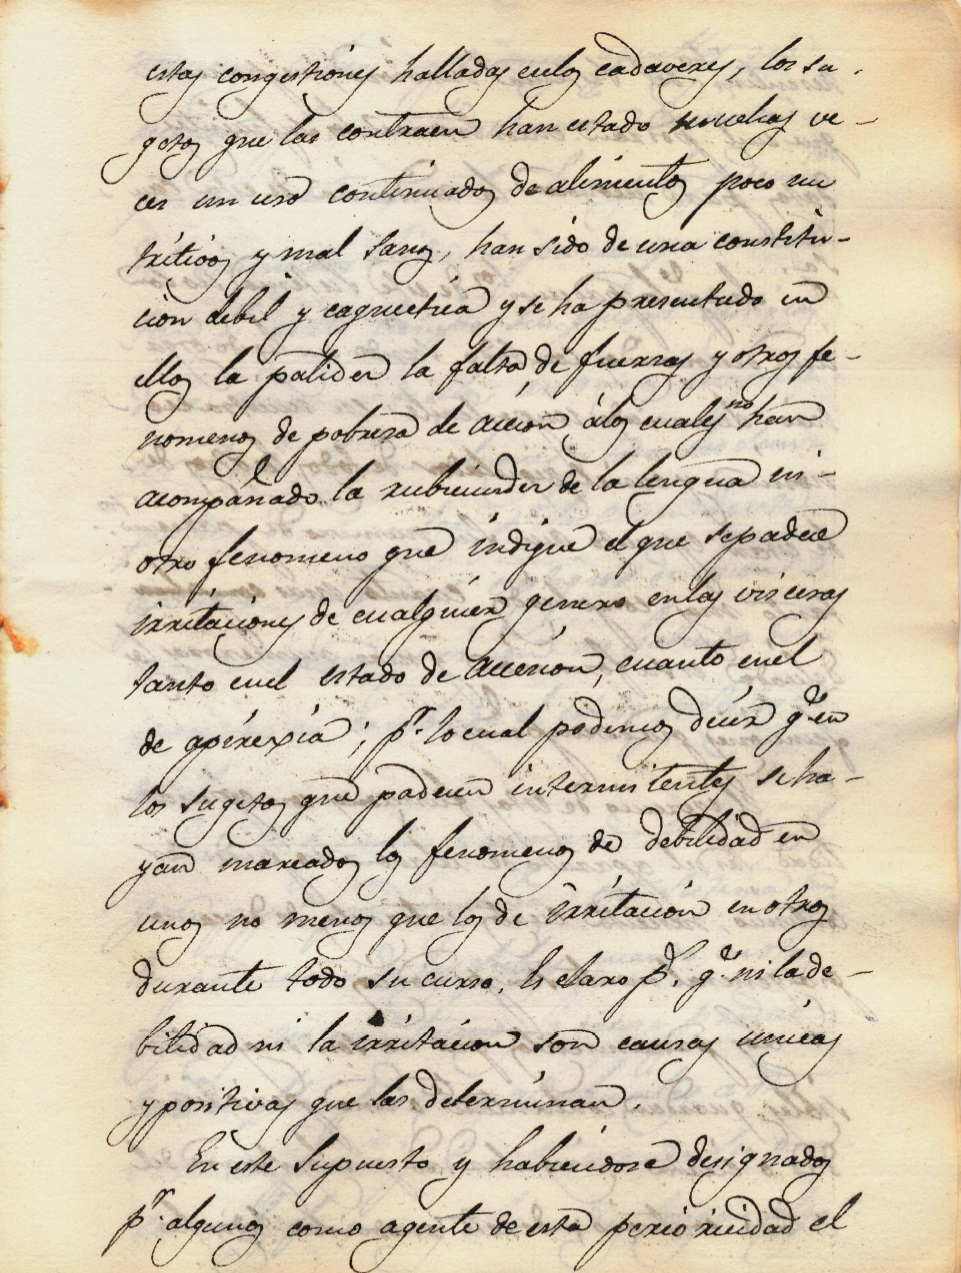 estas congestiones halladas en los cadaveres, los su-
getos que las contraen han estado muchas ve-
ces un uso continuados de alimentos poco nu
tritivos y mal sanos, han sido de una constitu-
cion debil y caquectica y se ha presentado en
ellos la palidez la falta de fuerzas y otros fe-
nomenos de pobreza de accion, á los cuales no han
acompañado la rubicundez de la lengua ni-
otro fenomeno que indique el que se padece
irritaciones de cualquier genero en las visceras
tanto en el estado de accesion, cuanto en el
de apirexia; pr. lo cual podemos decir qe. en
los sugetos que padecen intermitentes se ha-
yan marcados los fenomenos de debilidad en
unos no menos que los de irritacion en otros
durante todo su curso. Es claro ps. qe. ni la de-
bilidad ni la irritacion son causas unicas
y positivas que las determinan.
En este supuesto y habiendose designados
pr. algunos como agente de esta perioricidad el